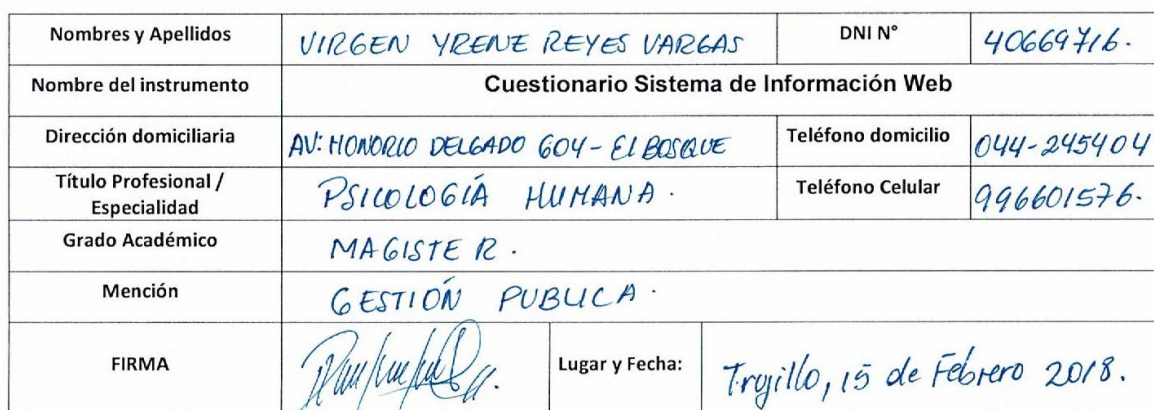 Nombres y Apellidos VIRGEN YRENE REYES VARGAS DNI N° 40669716.
Nombre del instrumento Cuestionario Sistema de Información Web
Dirección domiciliaria AV: HONORIO DELGADO 604 - El BOSQUE Teléfono domicilio 044-245404
Título Profesional /
Especialidad PSICOLOGÍA HUMANA. Teléfono Celular 996601576.
Grado Académico MAGISTER.
Mención GESTIÓN PUBLICA.
FIRMA Lugar y Fecha: Trujillo, 15 de Febrero 2018.